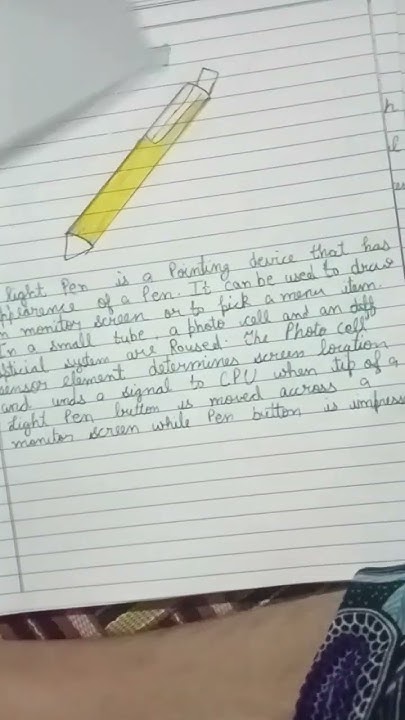 light Pen is a Pointing device that has
ppearance of a Pen. It can be used to draw
n monitor screen or to pick a menu item.
In a small tube, a photo cell and an
system are Paused. The Photo cell
ensor element determines screen location
and unds a signal to CPU when tip of a
Light Pen button is moved accross a
monitor screen while Pen button is